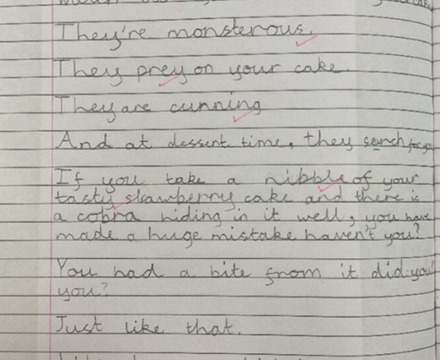 They're monsterous.
They prey on your cake.
They are cunning
And at dessert time, they serch for you
If you take a nibble of your
tasty strawberry cake and there is
a cobra hiding in it well, you have
made a huge mistake haven't you?
You had a bite from it did you
you?
Just like that.